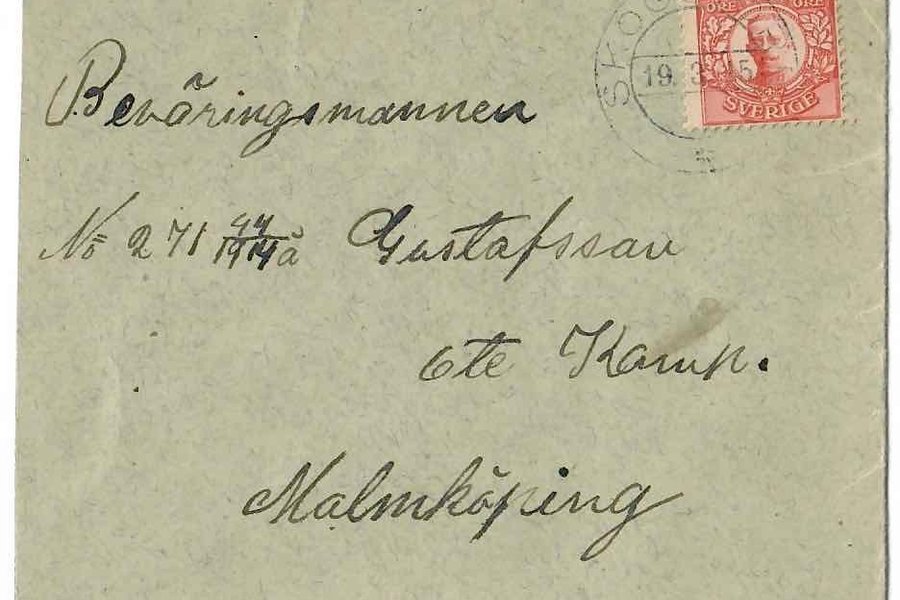 ÖRE ÖRE
SKOG
19. 3 15
SVERIGE
Beväringsmannen
No 271 44/1914 å Gustafsson
6te Komp.
Malmköping